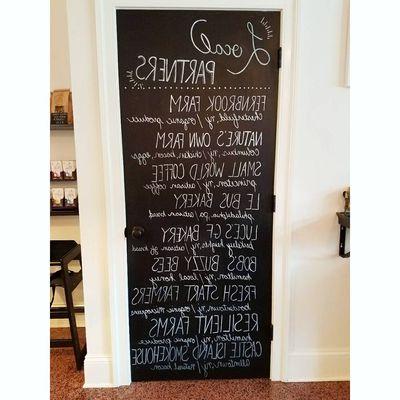 Local
PARTNERS
FERNBROOK FARM
Chesterfield, ny / organic produce
NATURE'S OWN FARM
Columbus, nj / chicken, bacon, eggs
SMALL WORLD COFFEE
princeton, nj / artisan coffee
LE BUS BAKERY
philadelphia, pa / artisan bread
LUCE'S GF BAKERY
berkeley heights, nj / artisan gf bread
BOB'S BUZZY BEES
hamilton, nj / local honey
FRESH START FARMERS
bordentown, nj / organic microgreens
RESILIENT FARMS
hamilton, nj / organic produce
CASTLE ISLAND SMOKEHOUSE
Allentown, nj / natural bacon